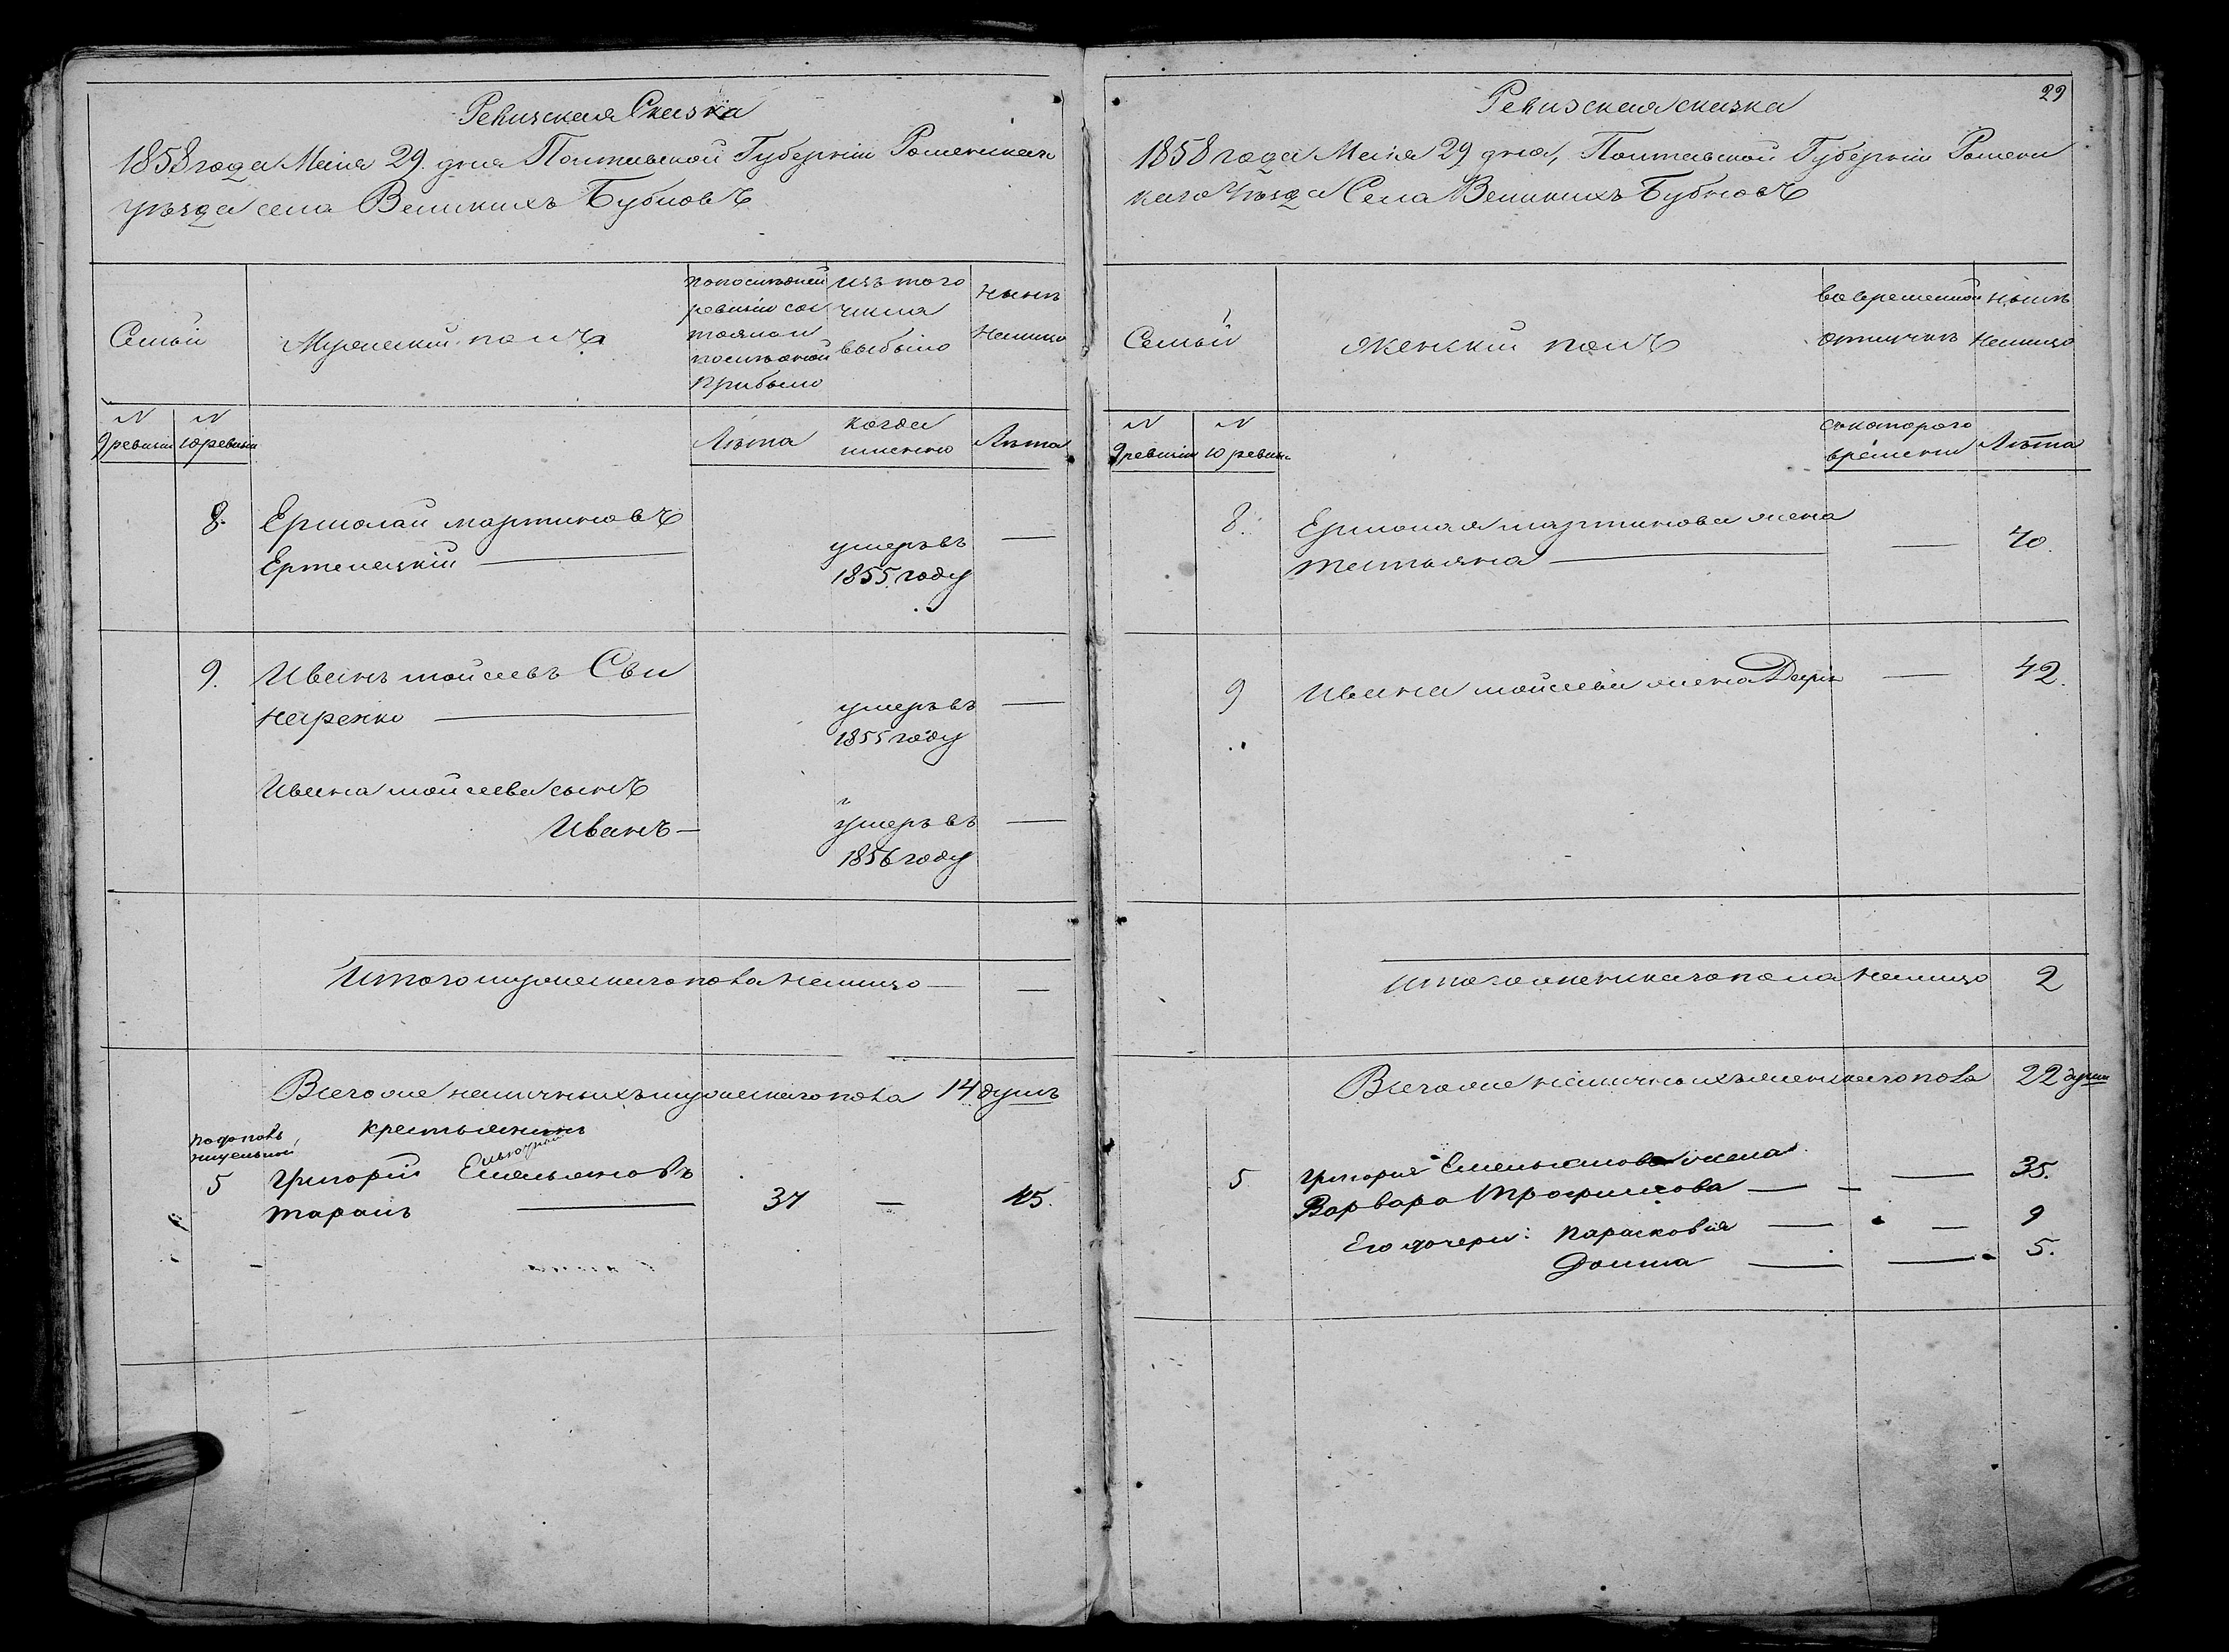 Ревизская Сказка
1858 года Маія 29. дня Полтавской Губерніи Роменскаго
уѣзда села Великихъ Бубновъ
Семьи
Мужескій полъ
по послѣдней
ревизіи сос
тояло и
послѣ оной
прибыло
изъ того
числа
выбыло
нынѣ
на лицо
N
9 ревизіи
N
10 ревизіи
Лѣта
когда
именно
Лѣта
8.
Ермолай Мартиновъ
умеръ въ
—
1855. году
9.
Иванъ Мойсеевъ Сви
наренко
умеръ въ
—
1855 году
Ивана Мойсеева сынъ
Иванъ —
умеръ въ
—
1856 году
Итого мужескаго пола на лицо —
—
Всего же наличныхъ мужескаго пола 14 душъ
по дополнительной
крестьянинъ
5
Григорій Емельяновъ
Таранъ
37
—
45.
29
Ревизская сказка
1858 года Маія 29 дня, Полтавской Губерніи Роменс
каго Уѣзда Села Великихъ Бубновъ
Семьи
Женскій полъ
во временной
отлучкѣ
нынѣ
на лицо
N
9 ревизіи
N
10 ревизіи
съ котораго
времени
Лѣта
8.
Ермолая Мартинова жена
Татьяна
—
40.
9
Ивана Мойсеева жена Дарія
—
42.
Итого женскаго пола на лицо
2
Всего же наличныхъ женскаго пола 22 души
5
Григорія Емельянова жена
Варвара Трофимова — — — 35.
Его дочери: Парасковія — — 9
Домна — — 5.